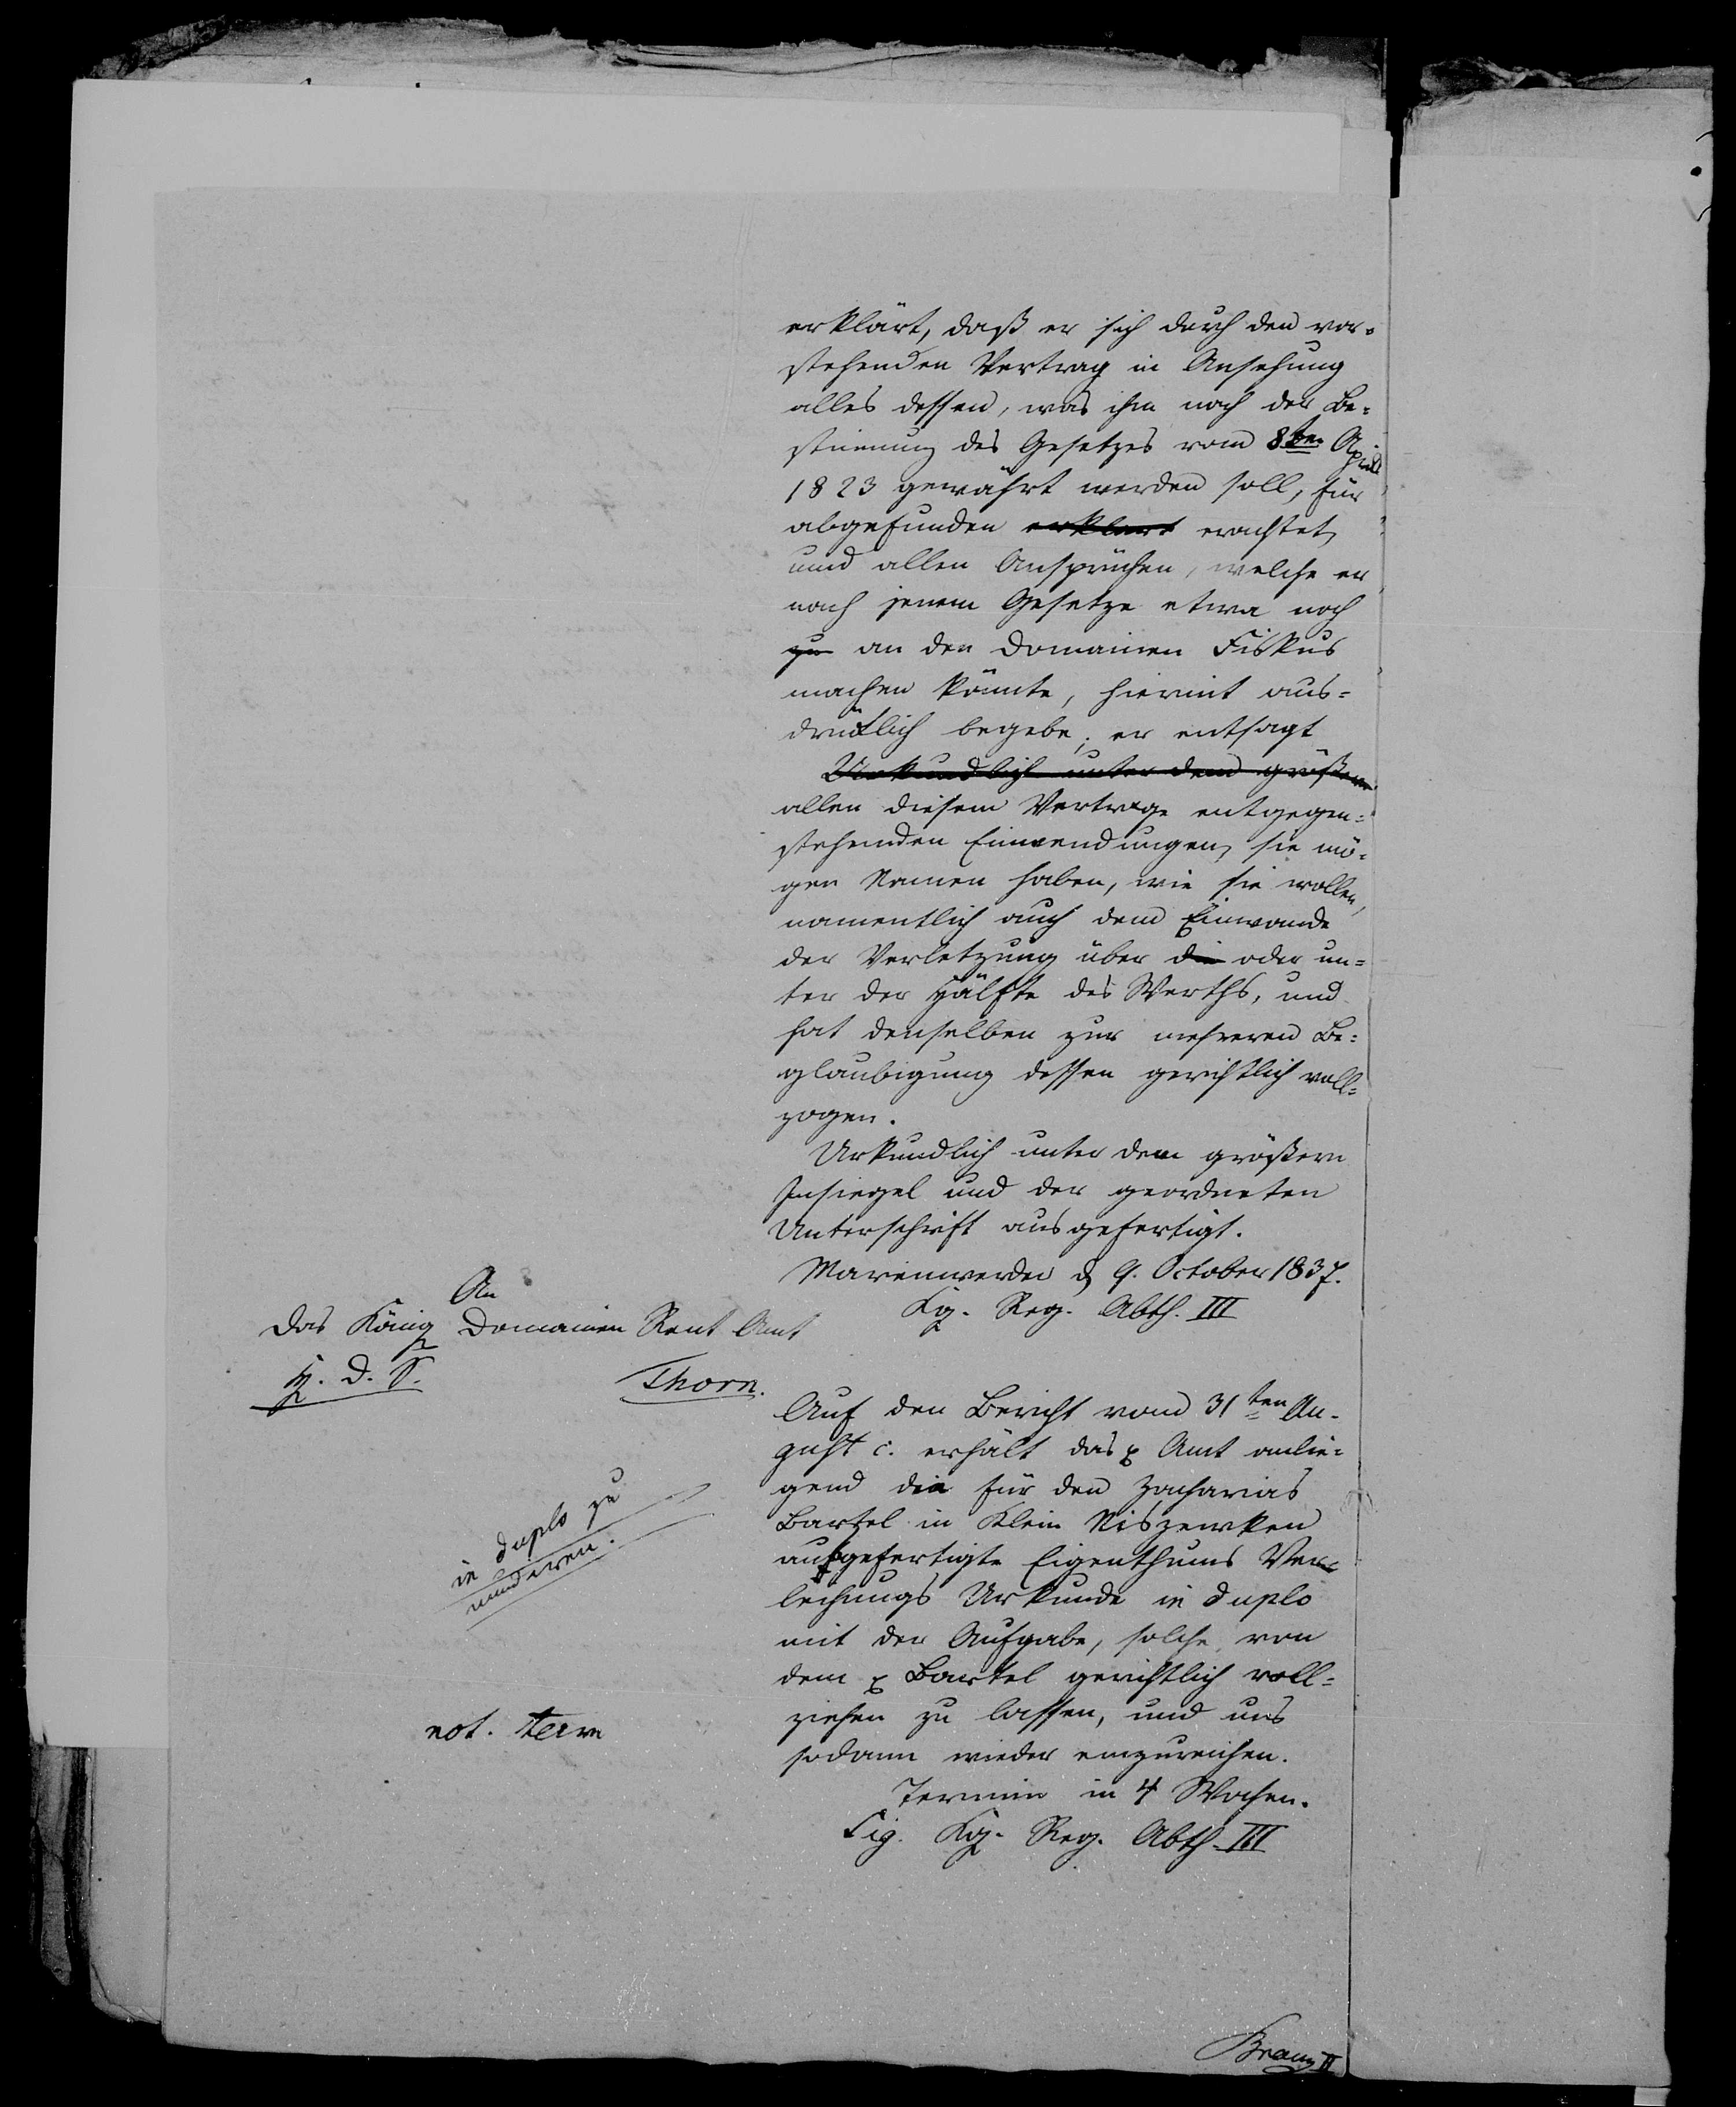 erklärt, daß er sich durch den vor-
stehenden Vertrag in Ansehung
alles dessen, was ihm nach der Be-
stimmung des Gesetzes vom 8ten April
1823 gewährt werden soll, für
abgefunden erklärt erachtet,
und allen Ansprüchen, welche er
nach jenem Gesetze etwa noch
zu an den Domainen Fiskus
machen könnte, hiermit aus-
drücklich begebe; er entsagt
Urkundlich unter dem größern
allen diesem Vertrage entgegen-
stehenden Einwendungen, sie mö-
gen Namen haben, wie sie wollen,
namentlich auch dem Einwande
der Verletzung über die oder un-
ter der Hälfte des Werths, und
hat denselben zur mehreren Be-
glaubigung dessen gerichtlich voll-
zogen.
Urkundlich unter dem größern
Insiegel und der geordneten
Unterschrift ausgefertigt.
Marienwerder d 9. October 1837.
Kg. Reg. Abth. III
An
das Königl Domainen Rent Amt
Thorn.
Auf den Bericht vom 31ten Au-
gust c. erhält das p Amt anlie-
gend die für den Zacharias
Bartel in Klein Niszewken
ausgefertigte Eigenthums Ver-
leihungs Urkunde in duplo
mit der Aufgabe, solche von
dem p Bartel gerichtlich voll-
ziehen zu lassen, und uns
sodann wieder einzureichen.
Termin in 4 Wochen.
Sig. Kg. Reg. Abth. III
in duplo zu
mundiren.
not. term
Braun II